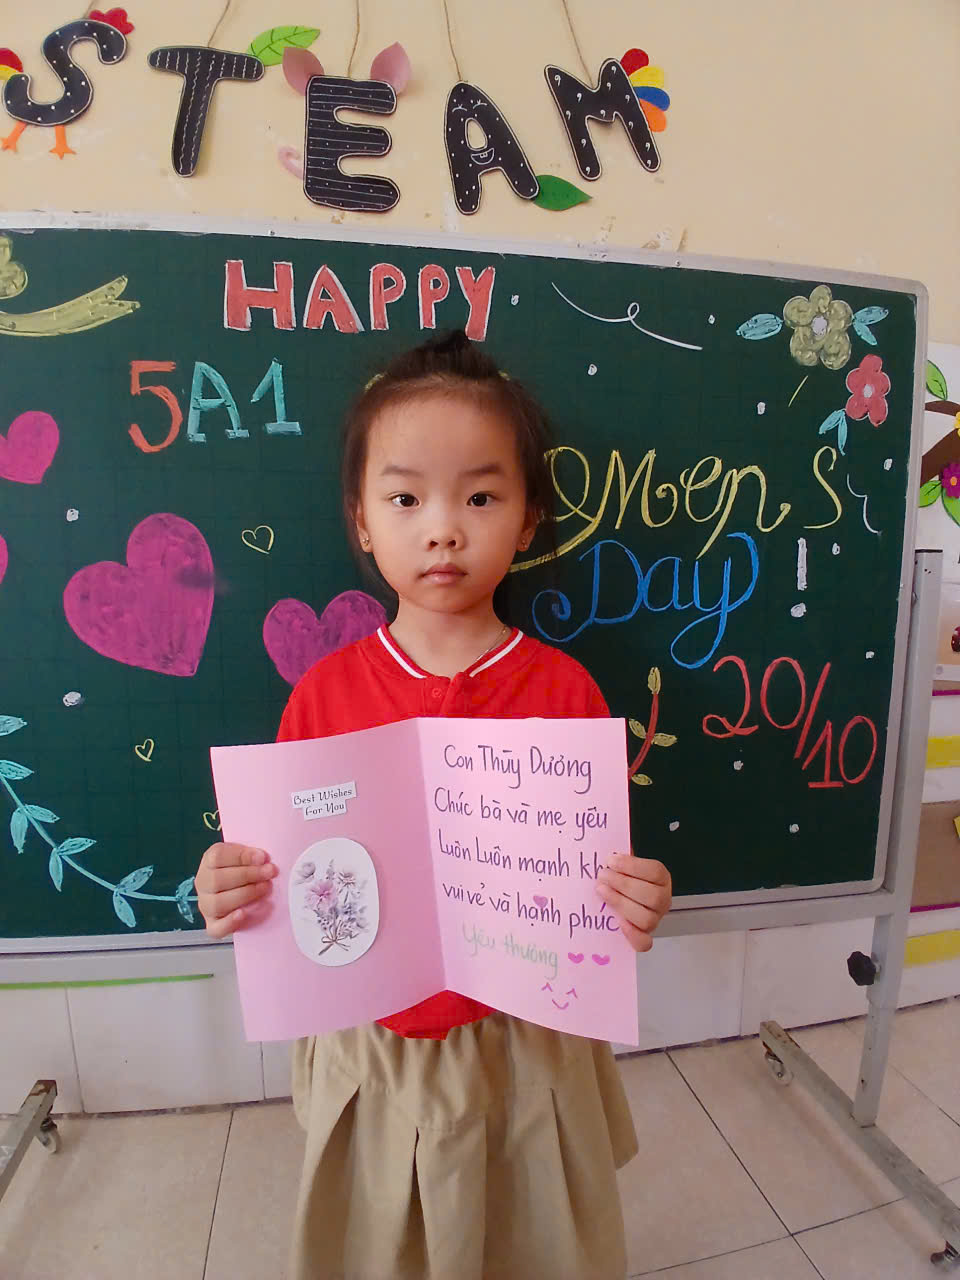 STEAM
HAPPY
5A1
Omen's
Day !
20/10
Best Wishes
For You
Con Thùy Dương
Chúc bà và mẹ yêu
Luôn Luôn mạnh kh
vui vẻ và hạnh phúc
Yêu thương